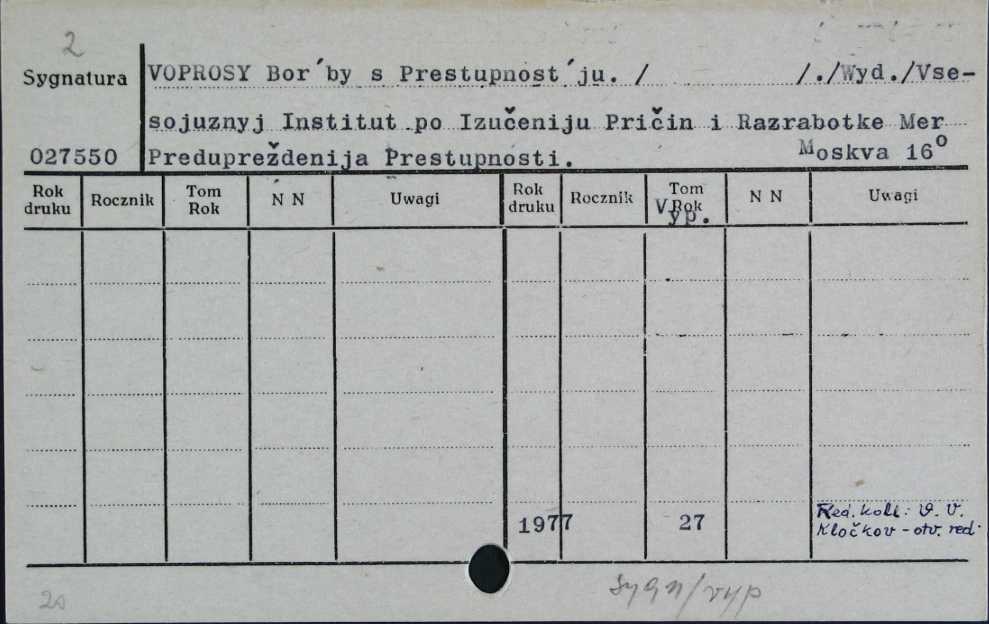 2
Sygnatura
VOPROSY Bor´by s Prestupnost´ju. / /./Wyd./Vse-
sojuznyj Institut po Izučeniju Pričin i Razrabotke Mer
027550 Predupreždenija Prestupnosti. Moskva 16°
Rok druku Rocznik Tom Rok N N Uwagi Rok druku Rocznik Tom Rok Vyp. N N Uwagi
1977 27 Red. koll: V. V.
Kločkov - otv. red.
sygn/vyp
20